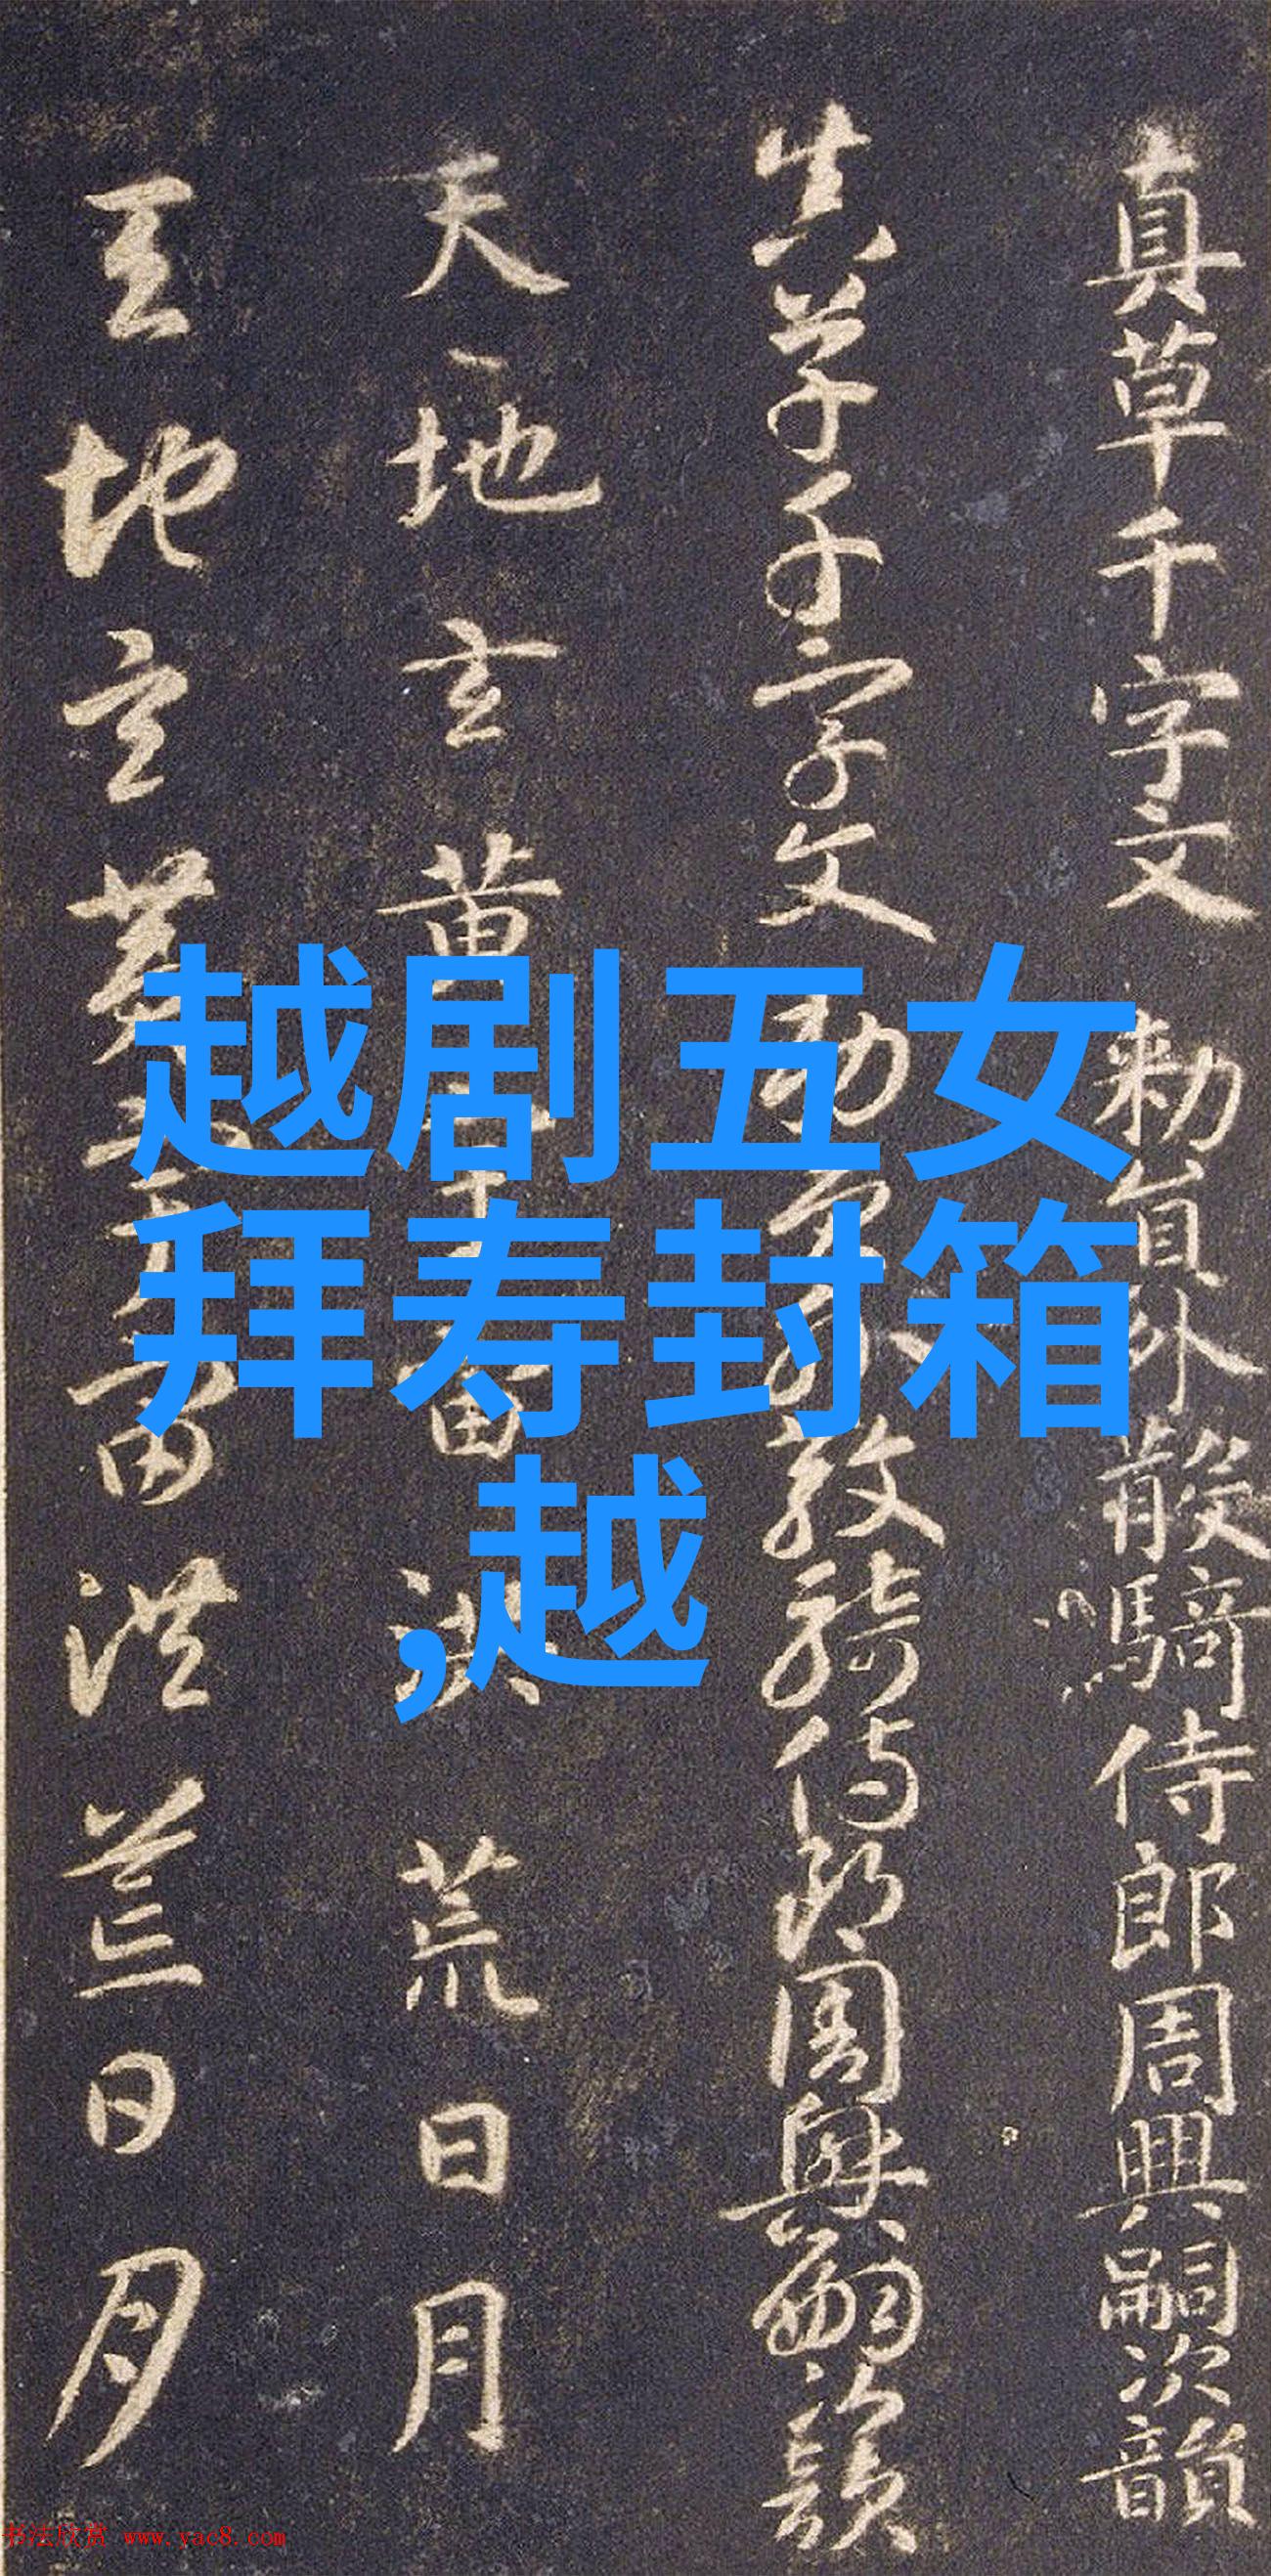 真草千字文 勅員外散騎侍郎周興嗣次韻
真草千字文 勅員外散騎侍郎周興嗣次韻
天地玄黄宇宙洪荒日月
天地玄黄宇宙洪荒日月
越剧五女
拜寿封箱
,越
书法欣赏 www.yac8.com